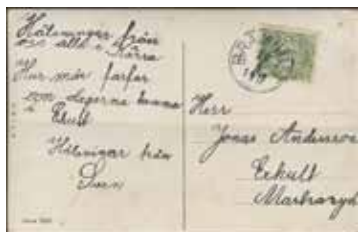 Hälsningar från
oss alla i Kärra
Hur mår farfar
som dagarna
i Ekult
Hälsningar från
Sven
BRÅ
Herr
Jonas Andersson
Ekult
Markaryd